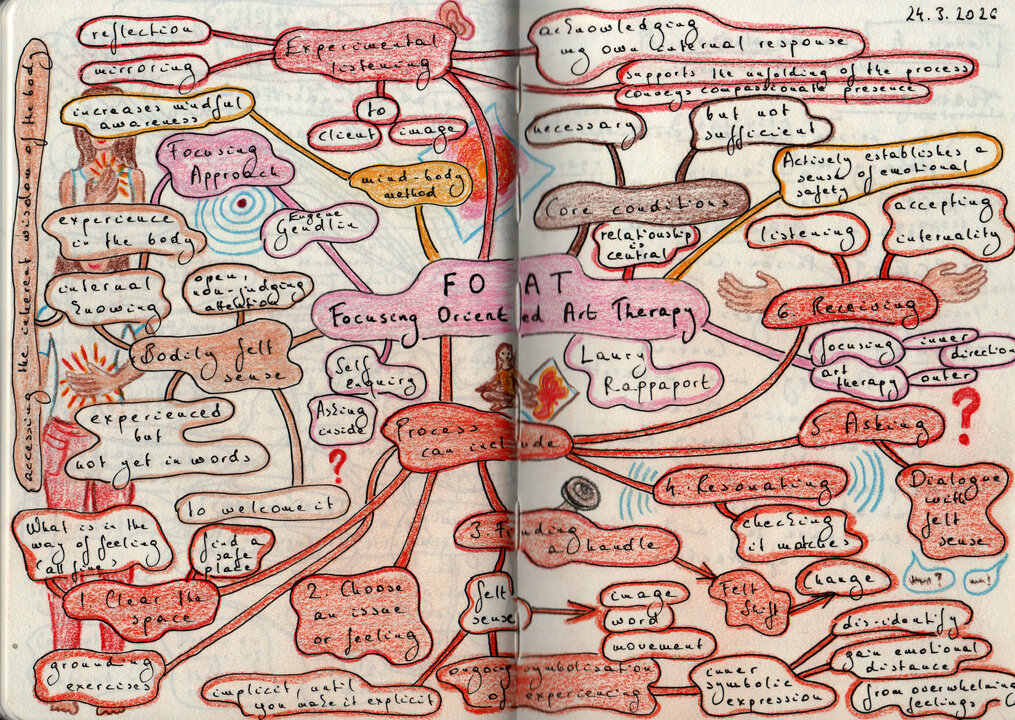 24.3.2026
reflection
mirroring
Experimental
listening
to
client
image
acknowledging
my own internal response
supports the unfolding of the process
conveys compassionate presence
accessing the inherent wisdom of the body
increases mindful
awareness
mind-body
method
Focusing
Approach
Eugene
Gendlin
necessary
but not
sufficient
Core conditions
relationship
is
central
Actively establishes a
sense of emotional
safety
listening
accepting
internality
6. Receiving
experience
in the body
internal
knowing
open,
non-judging
attention
Bodily felt
sense
experienced
but
not yet in words
to welcome it
FO AT
Focusing Oriented Art Therapy
Self
enquiry
Asking
inside
?
Laury
Rappaport
focusing
inner
direction
art
therapy
outer
Process
can include
5. Asking
?
Dialogue
with
felt
sense
4. Resonating
checking
it matches
What is in the
way of feeling
(all fine)
find a
safe
place
1. Clear the
space
grounding
exercises
2. Choose
an issue
or feeling
3. Finding
a handle
felt
sense
image
word
movement
Felt
Shift
Change
implicit, until
you make it explicit
ongoing symbolisation
of experiencing
inner
symbolic
expression
dis-identify
gain emotional
distance
from overwhelming
feelings